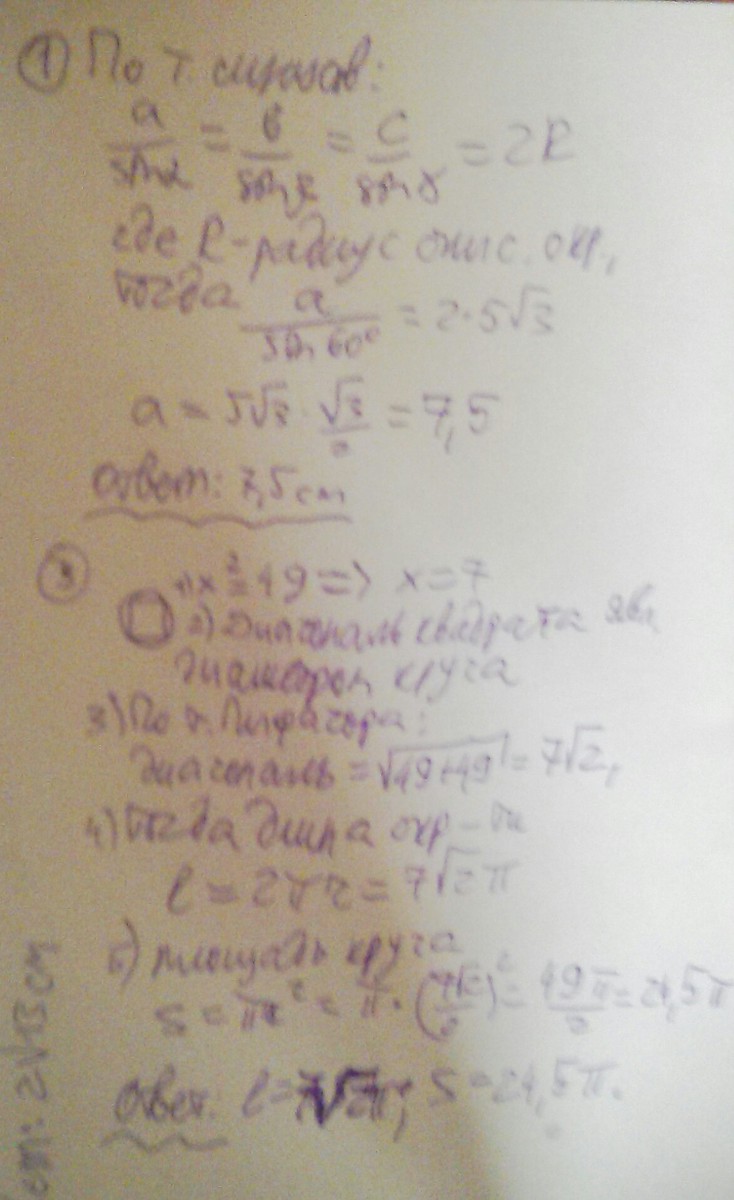 ① По т. синусов:
a/sinα = b/sinβ = c/sinγ = 2R
где R - радиус опис. окр.,
тогда a/sin60° = 2·5√3
a = 5√3 · √3/2 = 7,5
Ответ: 7,5 см
③ 1) x² = 49 => x = 7
2) Диагональ квадрата явл
диаметром круга
3) По т. Пифагора:
диагональ = √49+49 = 7√2,
4) Тогда длина окр-ти
l = 2πr = 7√2π
5) площадь круга
S = πr² = π·(7√2/2)² = 49π/2 = 24,5π
Ответ: l=7√2π; S=24,5π.
2√13 см